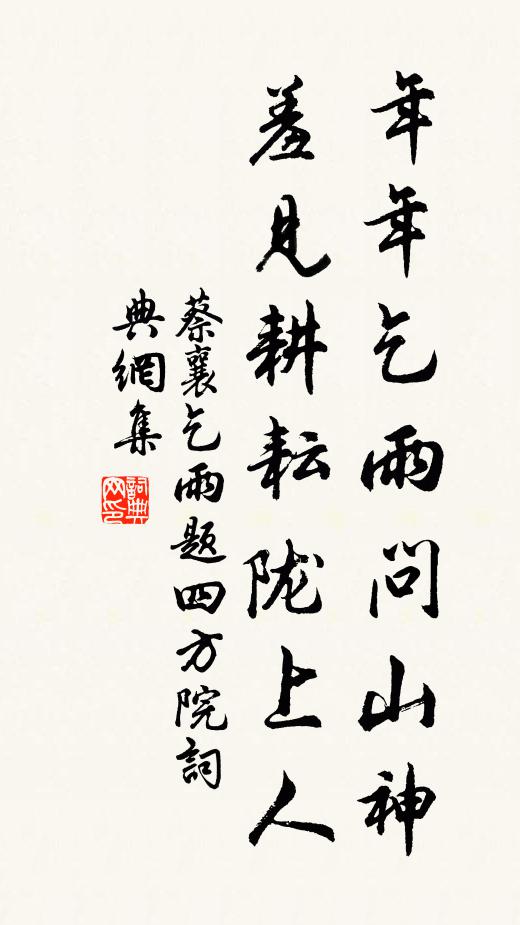 年年乞雨问山神
羞見耕耘陇上人
蔡襄乞雨题四方院詞
典網集
詞典网印